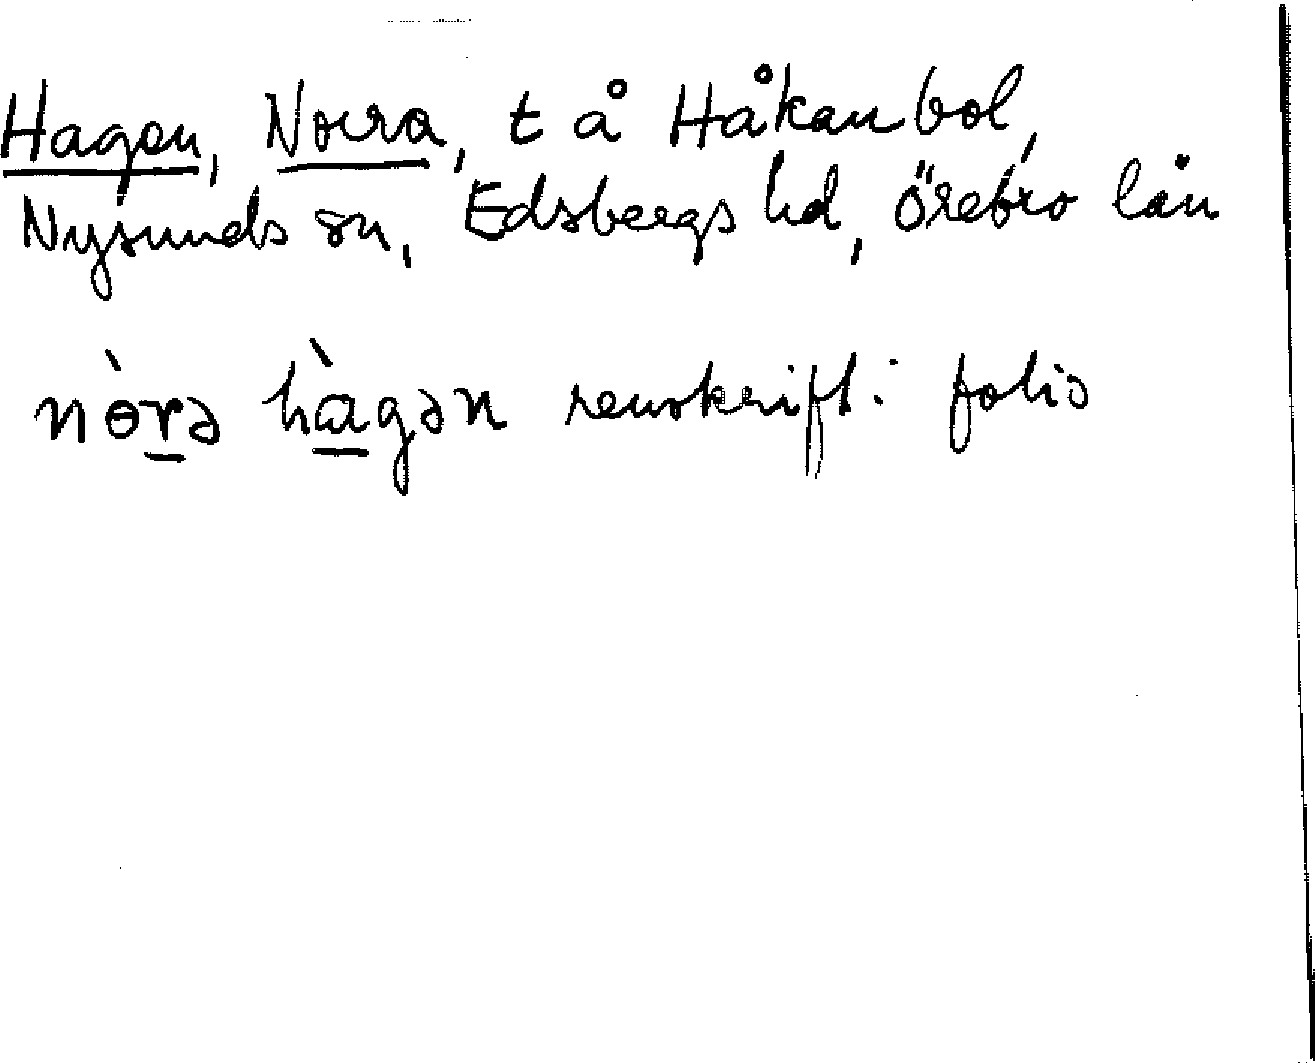 Hagen, Norra, t å Håkanbol,
Nysunds sn, Edsbergs hd, Örebro län
nòrə hàgən renskrift: folio